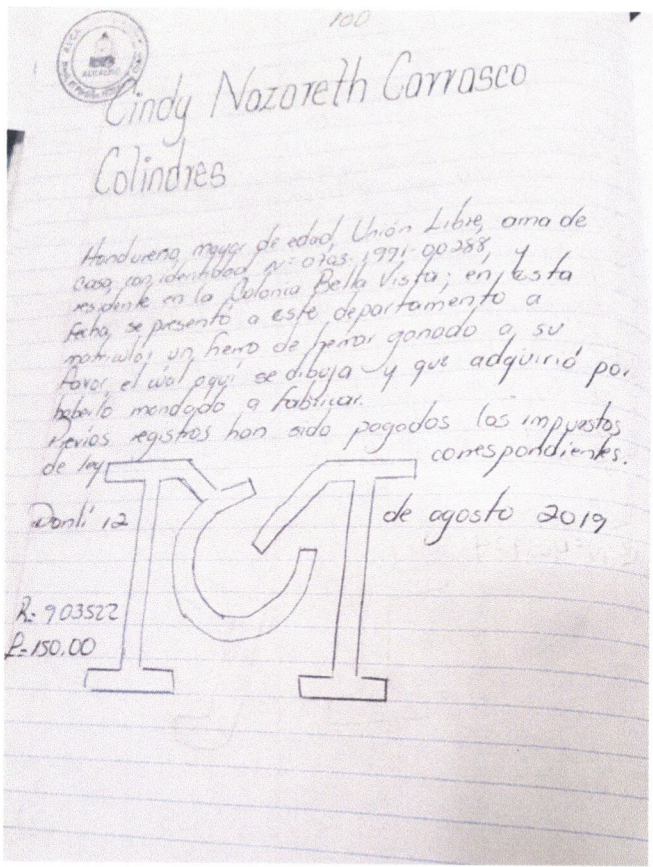 100
ALCALDIA
Cindy Nazareth Carrasco
Colindres
Hondureña, mayor de edad, Unión Libre, ama de
casa, con identidad Nº 0703-1991-00288, y
residente en la Colonia Bella Vista; en esta
fecha, se presentó a este departamento a
matricular un fierro de herrar ganado a su
favor el cual aquí se dibuja y que adquirió por
haberlo mandado a fabricar.
Previos registros han sido pagados los impuestos
de ley correspondientes.
Danlí 12 de agosto 2019
R= 903522
P=150.00